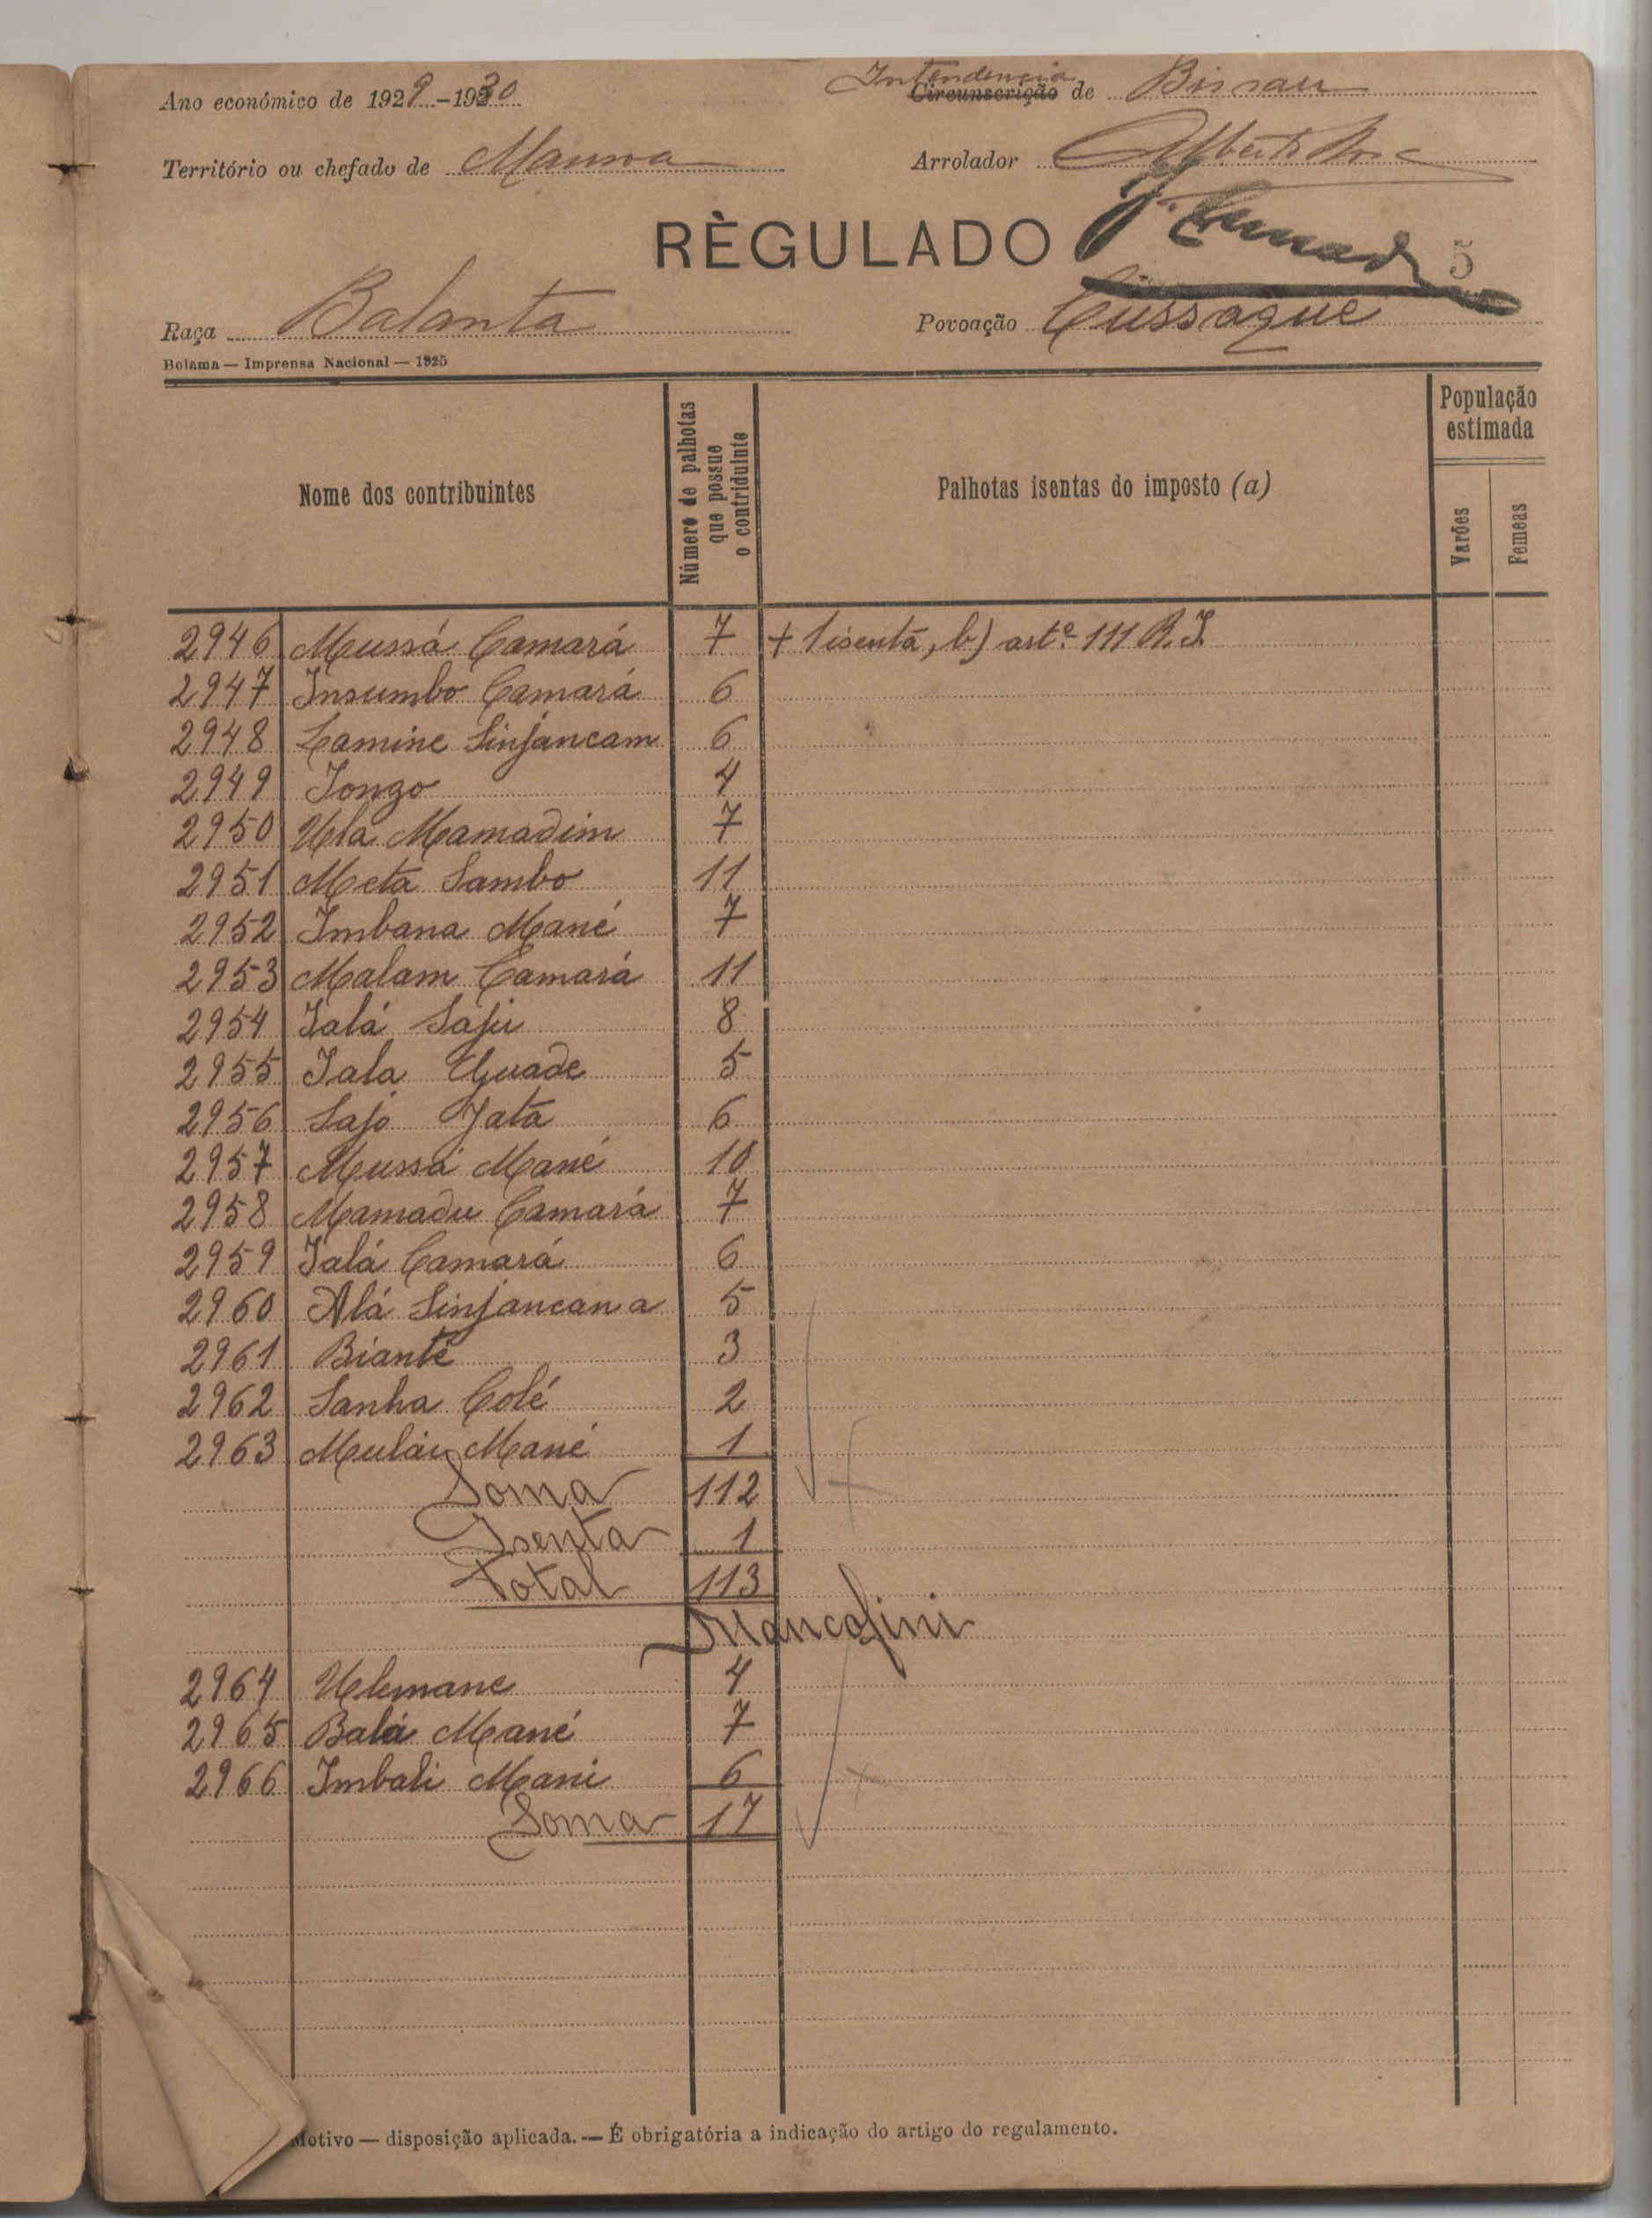 Ano económico de 1929-1930
Intendencia
Circunscrição de Bissau
Território ou chefado de Mansoa
Arrolador Alberto
RÈGULADO
5
Raça Balanta
Povoação Cussaque
Bolama — Imprensa Nacional — 1925
Nome dos contribuintes
Número de palhotas que possue o contriduinte
Palhotas isentas do imposto (a)
População estimada
Varões
Femeas
2946 Mussá Camará 7 + 1 isenta, b) artº 111 R. I.
2947 Insumbo Camará 6
2948 Lamine Sinjancam 6
2949 Iongo 4
2950 Ula Mamadim 7
2951 Metá Sambo 11
2952 Imbana Mané 7
2953 Malam Camará 11
2954 Ialá Saju 8
2955 Iala Quade 5
2956 Sajó Jatá 6
2957 Mussá Mané 10
2958 Mamadu Camará 7
2959 Ialá Camará 6
2960 Alá Sinjancana 5
2961 Bianté 3
2962 Sanha Colé 2
2963 Mulai Mané 1
Soma 112
Isenta 1
Total 113
Mancofini
2964 Ulemane 4
2965 Balá Mané 7
2966 Imbali Mani 6
Soma 17
Motivo — disposição aplicada. — É obrigatória a indicação do artigo do regulamento.